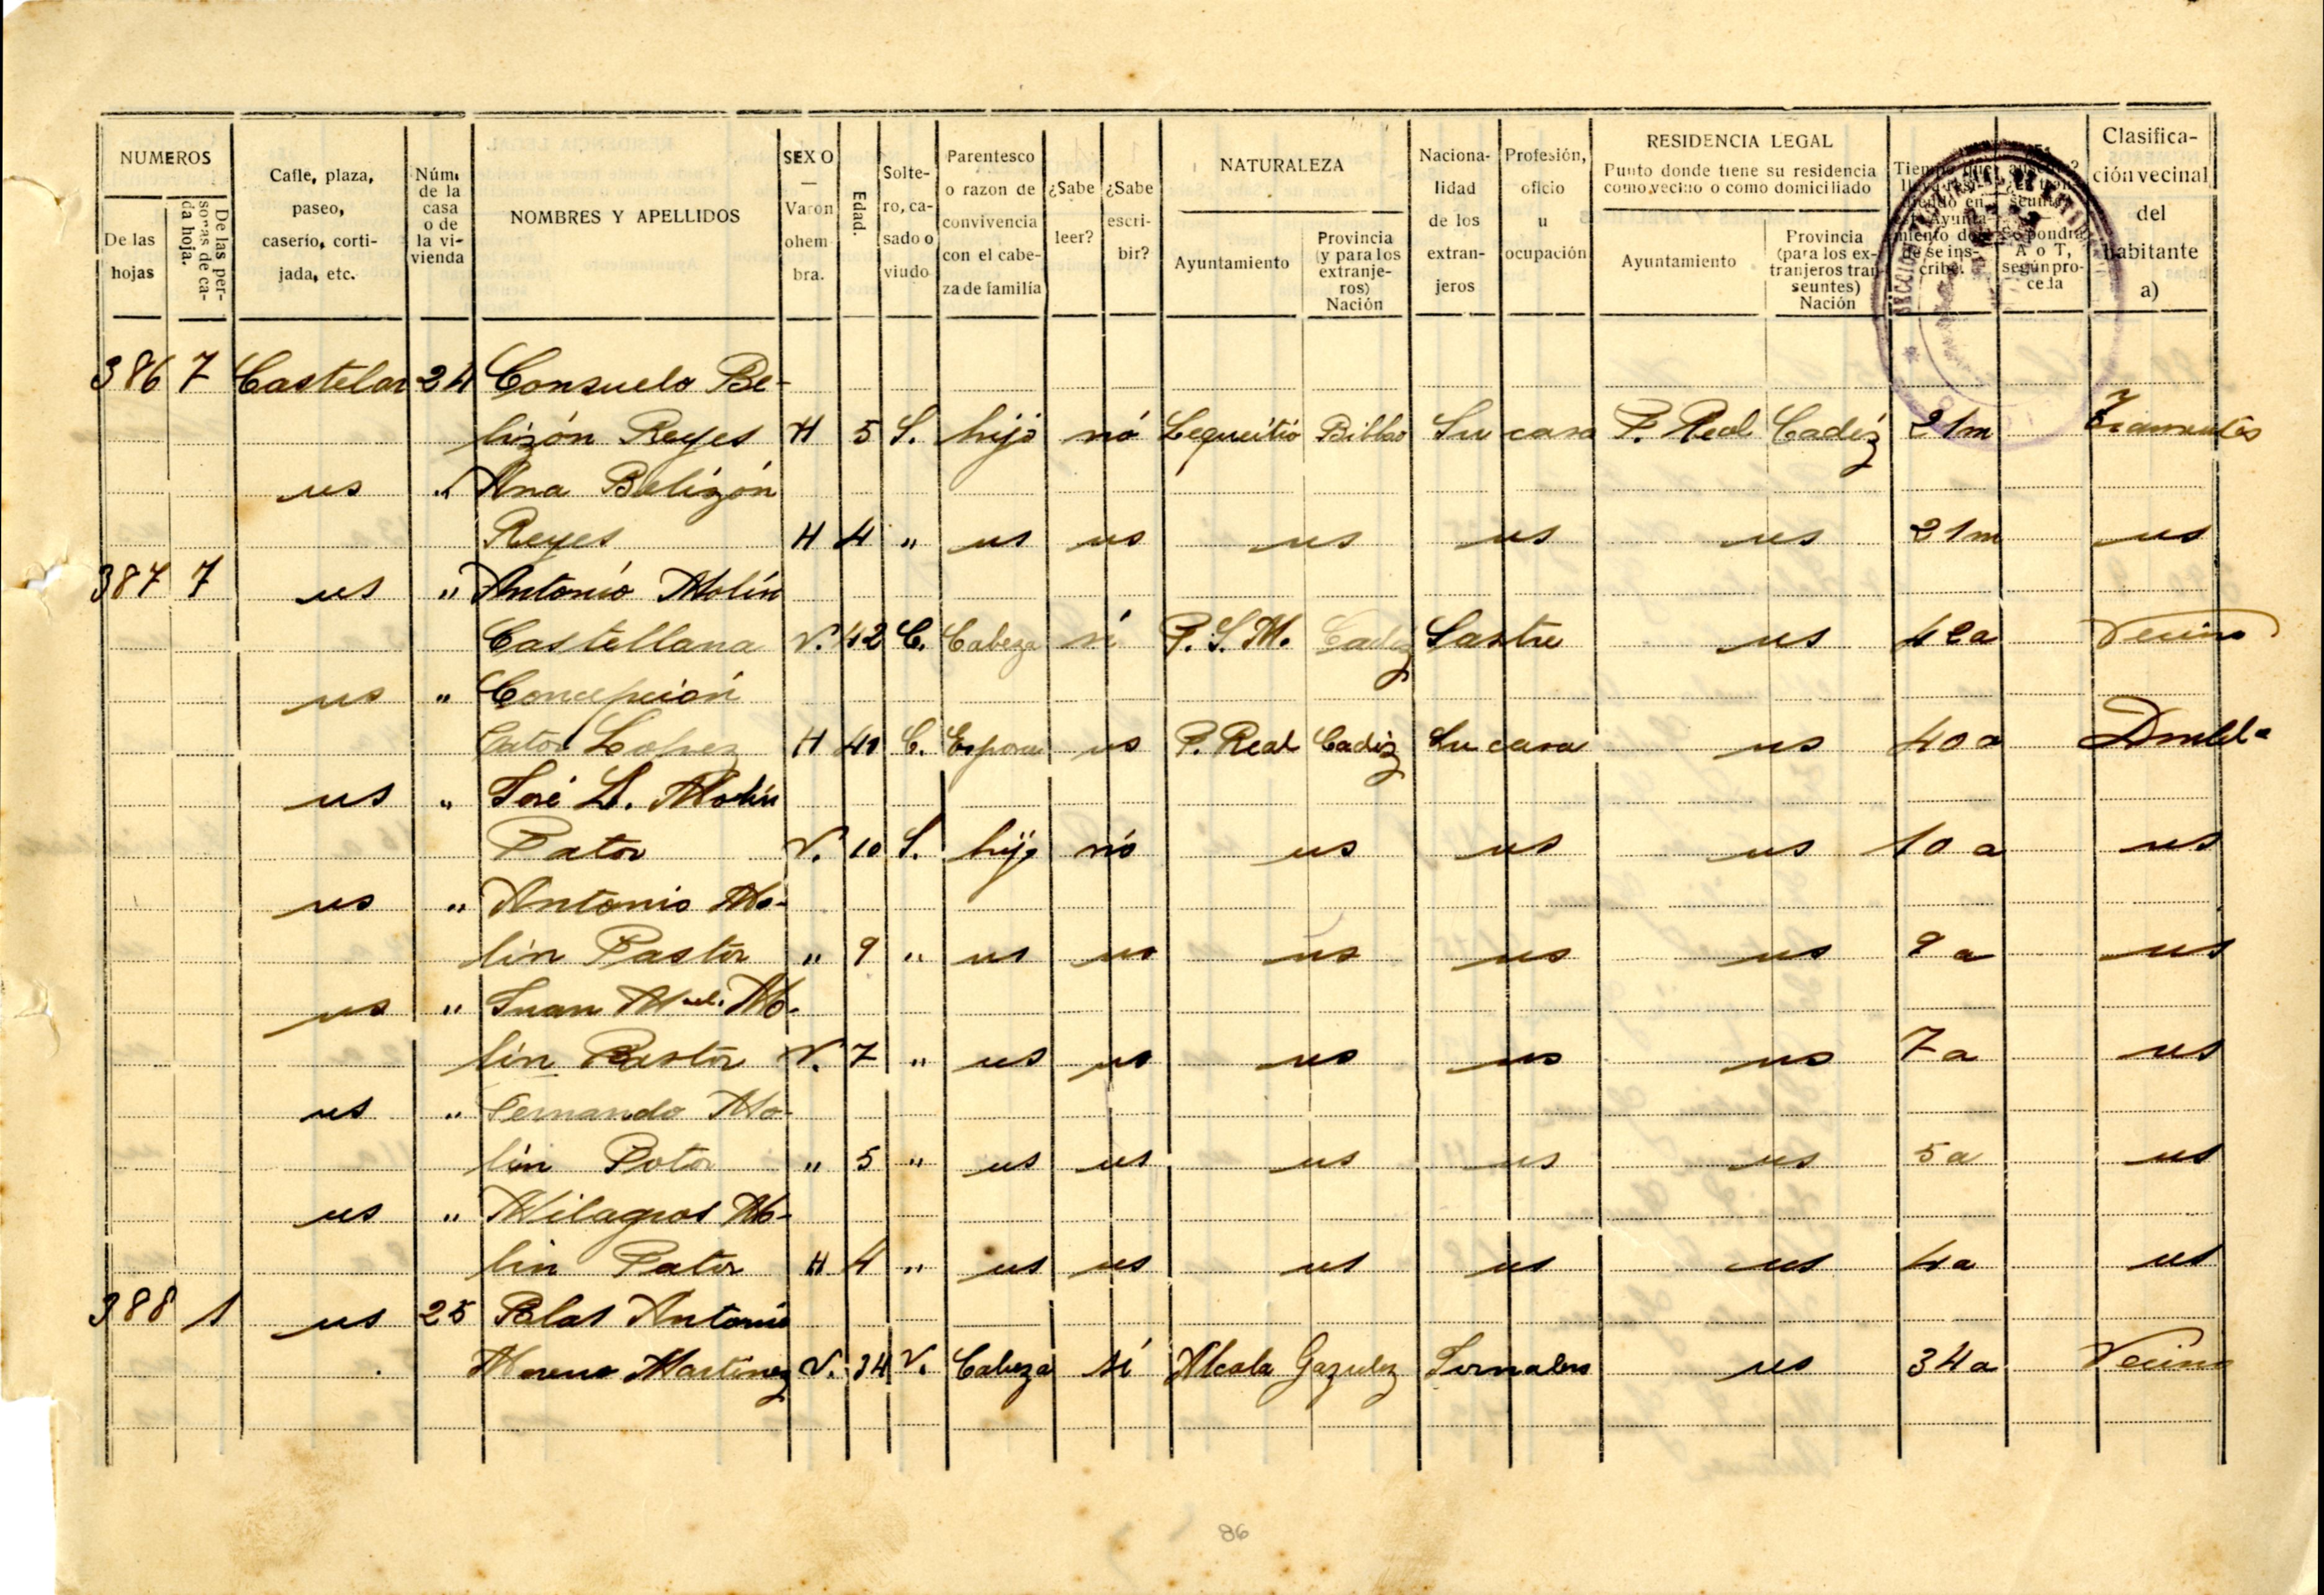 NUMEROS
De las hojas
De las personas de cada hoja.
Calle, plaza, paseo, caserio, cortijada, etc.
Núm. de la casa o de la vivienda
NOMBRES Y APELLIDOS
SEXO — Varon ohembra.
Edad.
Soltero, casado o viudo
Parentesco o razon de convivencia con el cabeza de familia
¿Sabe leer?
¿Sabe escribir?
NATURALEZA
Ayuntamiento
Provincia (y para los extranjeros) Nación
Nacionalidad de los extranjeros
Profesión, oficio u ocupación
RESIDENCIA LEGAL
Punto donde tiene su residencia como vecino o como domiciliado
Ayuntamiento
Provincia (para los extranjeros transeuntes) Nación
Clasificación vecinal del habitante a)
386 7 Castelar 24 Consuelo Be-
lizón Reyes H 5 S. hijo nó Lequeitio Bilbao Su casa P. Real Cadiz 21m
us " Ana Belizón
Reyes H 4 " us us us us us 21m us
387 7 us " Antonio Molín
Castellana V. 42 C. Cabeza si P. S. M. Cadiz Sastre us 42a Vecino
us " Concepción
Pator Lopez H 40 C. Esposa us P. Real Cadiz Su casa us 40a
us " José L. Molín
Pator V. 10 S. hijo nó us us us 10 a us
us " Antonio Mo-
lin Pastor " 9 " us us us us us 9 a us
us " Juan Mel. Mo-
lin Pastor V. 7 " us us us us us 7a us
us " Fernando Mo-
lin Pator " 5 " us us us us us 5a us
us " Milagros Mo-
lin Pator H 4 " us us us us us 4a us
388 1 us 25 Blas Antonio
Moreno Martinez V. 34 V. Cabeza sí Alcala Gazulez Jornalero us 34a Vecino
86